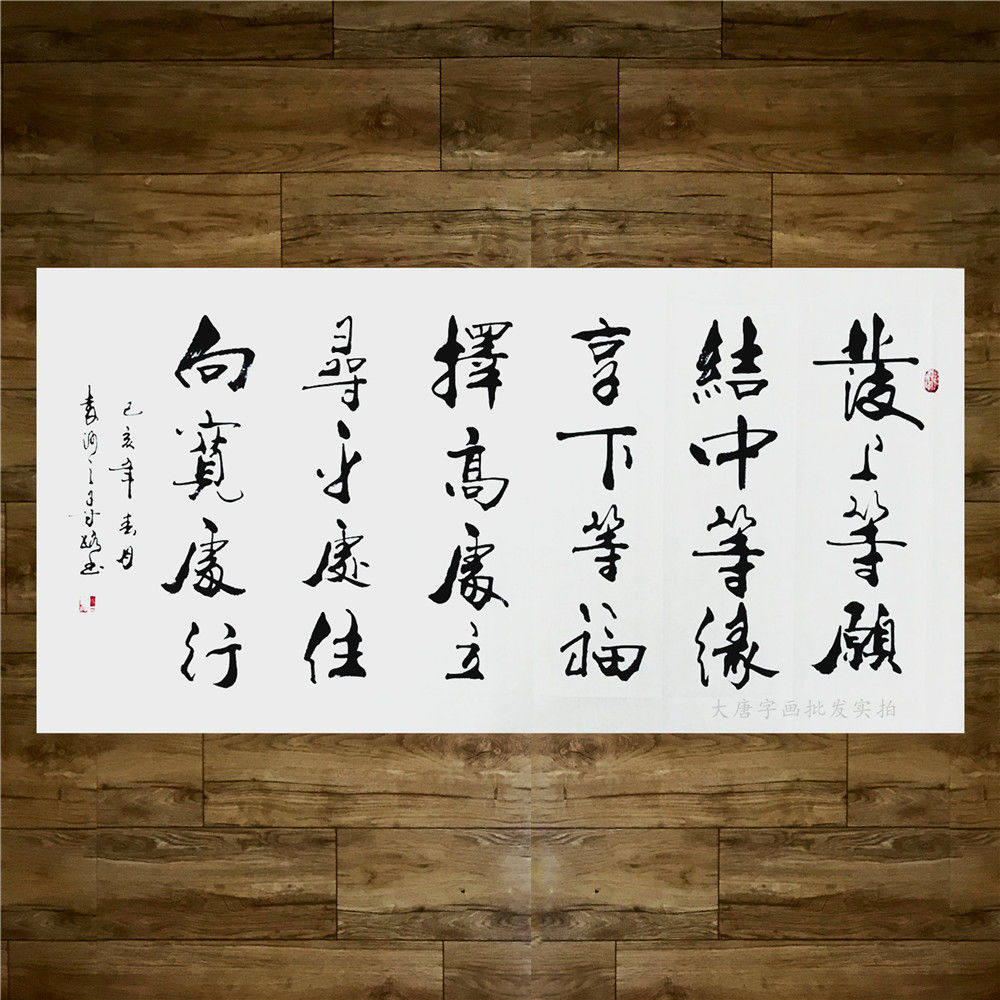 發上等願
結中等緣
享下等福
擇高處立
尋平處住
向寬處行
己亥年春月
大唐字画批发实拍